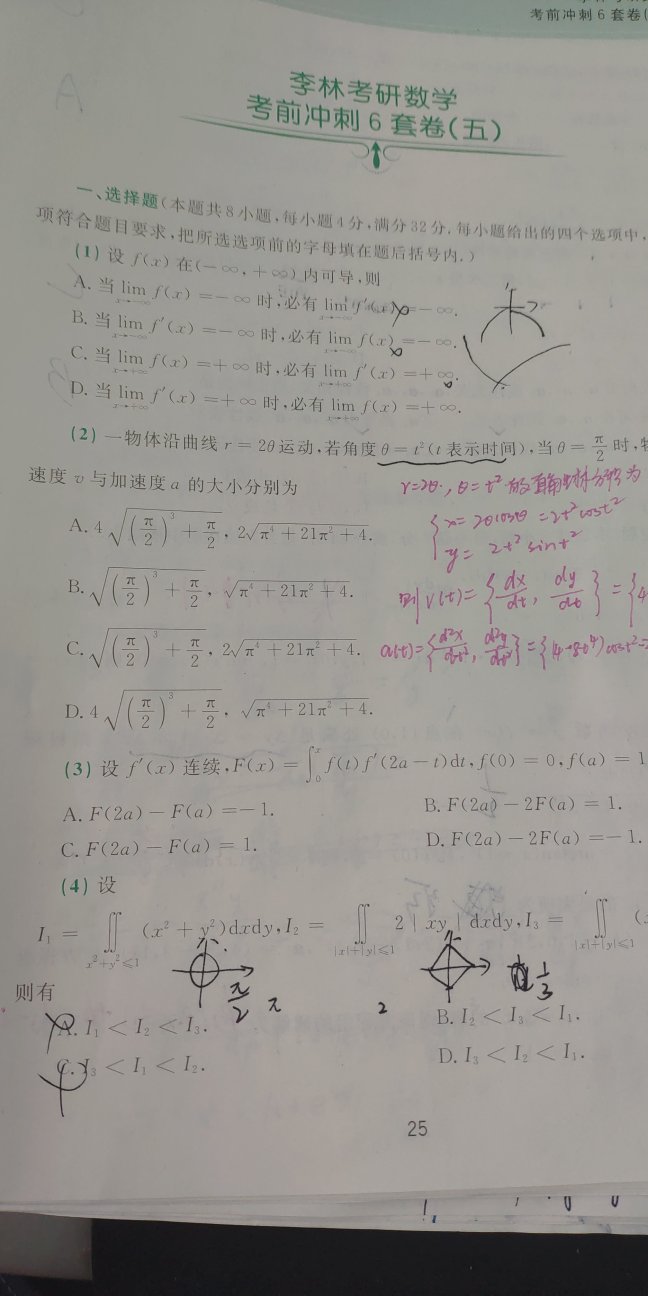 考前冲刺6套卷(
李林考研数学
考前冲刺6套卷(五)
一、选择题(本题共8小题,每小题4分,满分32分,每小题给出的四个选项中,
项符合题目要求,把所选选项前的字母填在题后括号内.)
(1) 设 f(x) 在(−∞,+∞)内可导,则
A. 当 lim_{x→−∞} f(x) =−∞ 时,必有 lim_{x→−∞} f′(x) =−∞.
B. 当 lim_{x→−∞} f′(x) =−∞ 时,必有 lim_{x→−∞} f(x) =−∞.
C. 当 lim_{x→+∞} f(x) =+∞ 时,必有 lim_{x→+∞} f′(x) =+∞.
D. 当 lim_{x→+∞} f′(x) =+∞ 时,必有 lim_{x→+∞} f(x) =+∞.
(2) 一物体沿曲线 r = 2θ 运动,若角度 θ = t²(t 表示时间),当 θ = π/2 时,
速度 v 与加速度 a 的大小分别为
r=2θ, θ=t² 的直角坐标方程为
A. 4√((π/2)³ + π/2), 2√(π⁴+21π²+4).
{ x= 2θcosθ = 2t²cost²
y= 2t² sint²
B. √((π/2)³ + π/2), √(π⁴+21π²+4).
则 v(t)= {dx/dt, dy/dt} = {4
C. √((π/2)³ + π/2), 2√(π⁴+21π²+4).
a(t)={d²x/dt², d²y/dt²} = {(4-8t⁴)cost²-2
D. 4√((π/2)³ + π/2), √(π⁴+21π²+4).
(3) 设 f′(x) 连续,F(x) = ∫₀ˣ f(t)f′(2a−t)dt, f(0) = 0, f(a) = 1
A. F(2a)−F(a) =−1.
B. F(2a)−2F(a) = 1.
C. F(2a)−F(a) = 1.
D. F(2a)−2F(a) =−1.
(4) 设
I₁ = ∬_{x²+y²≤1} (x²+y²)dxdy, I₂ = ∬_{|x|+|y|≤1} 2|xy|dxdy, I₃ = ∬_{|x|+|y|≤1} (
π/2 π
1/3
则有
2
A. I₁ < I₂ < I₃.
B. I₂ < I₃ < I₁.
C. I₃ < I₁ < I₂.
D. I₃ < I₂ < I₁.
25